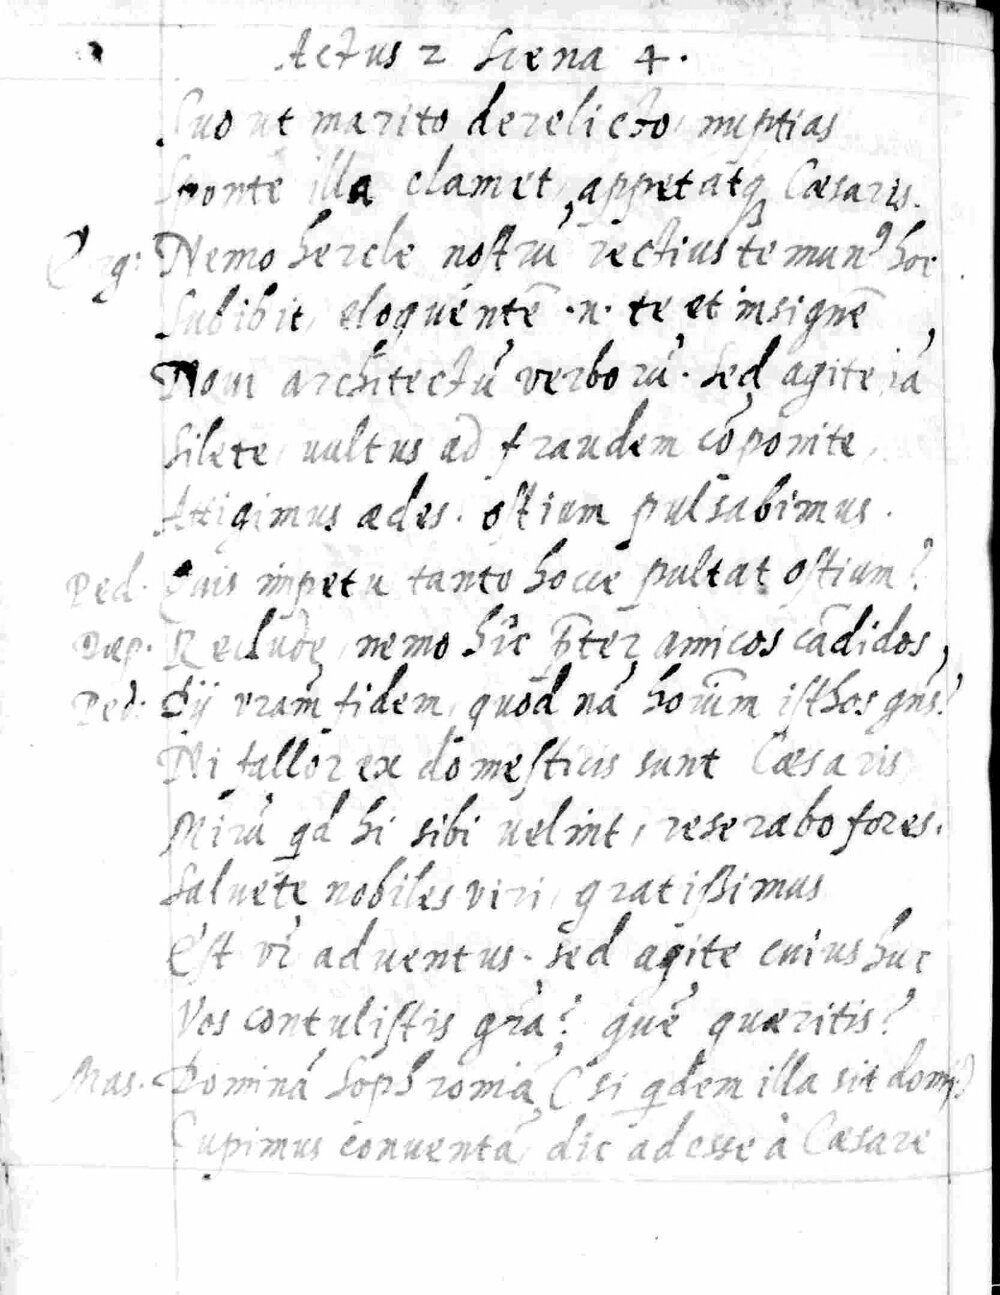 Actus 2 Scena 4.
Suo ut marito derelicto, nuptias
Sponte illa clamet, appetatq̨ Cæsaris.
Erg: Nemo hercle nostrũ rectius te munꝰ hoc
Subibit, eloquentẽ .n. te et insignẽ
Noui architectũ verborũ. Sed agite iã
Silete, uultus ad fraudem cõponite,
Attigimus ædes. ostium pulsabimus.
Ped. Quis impetu tanto hocce pultat ostium?
Dap. Reclude, nemo hîc p̃ter amicos cãdidos,
Ped: Dij vram̃ fidem, quod nã horum̃ isthos gñs?
Ni fallor ex domesticis sunt Cæsaris,
Mirũ qd hi sibi uelint, reserabo fores.
Saluete nobiles viri, gratißimus
Est vr̃ aduentus. sed agite cuius huc
Vos contulistis grã? quẽ quæritis?
Mas. Dominã Sophroniã, (si qdem illa sit domi)
Cupimus conuentã, dic adesse à Cæsare